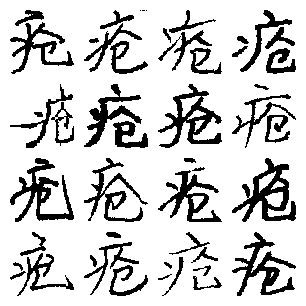 疮疮疮疮
疮疮疮疮
疮疮疮疮
疮疮疮疮